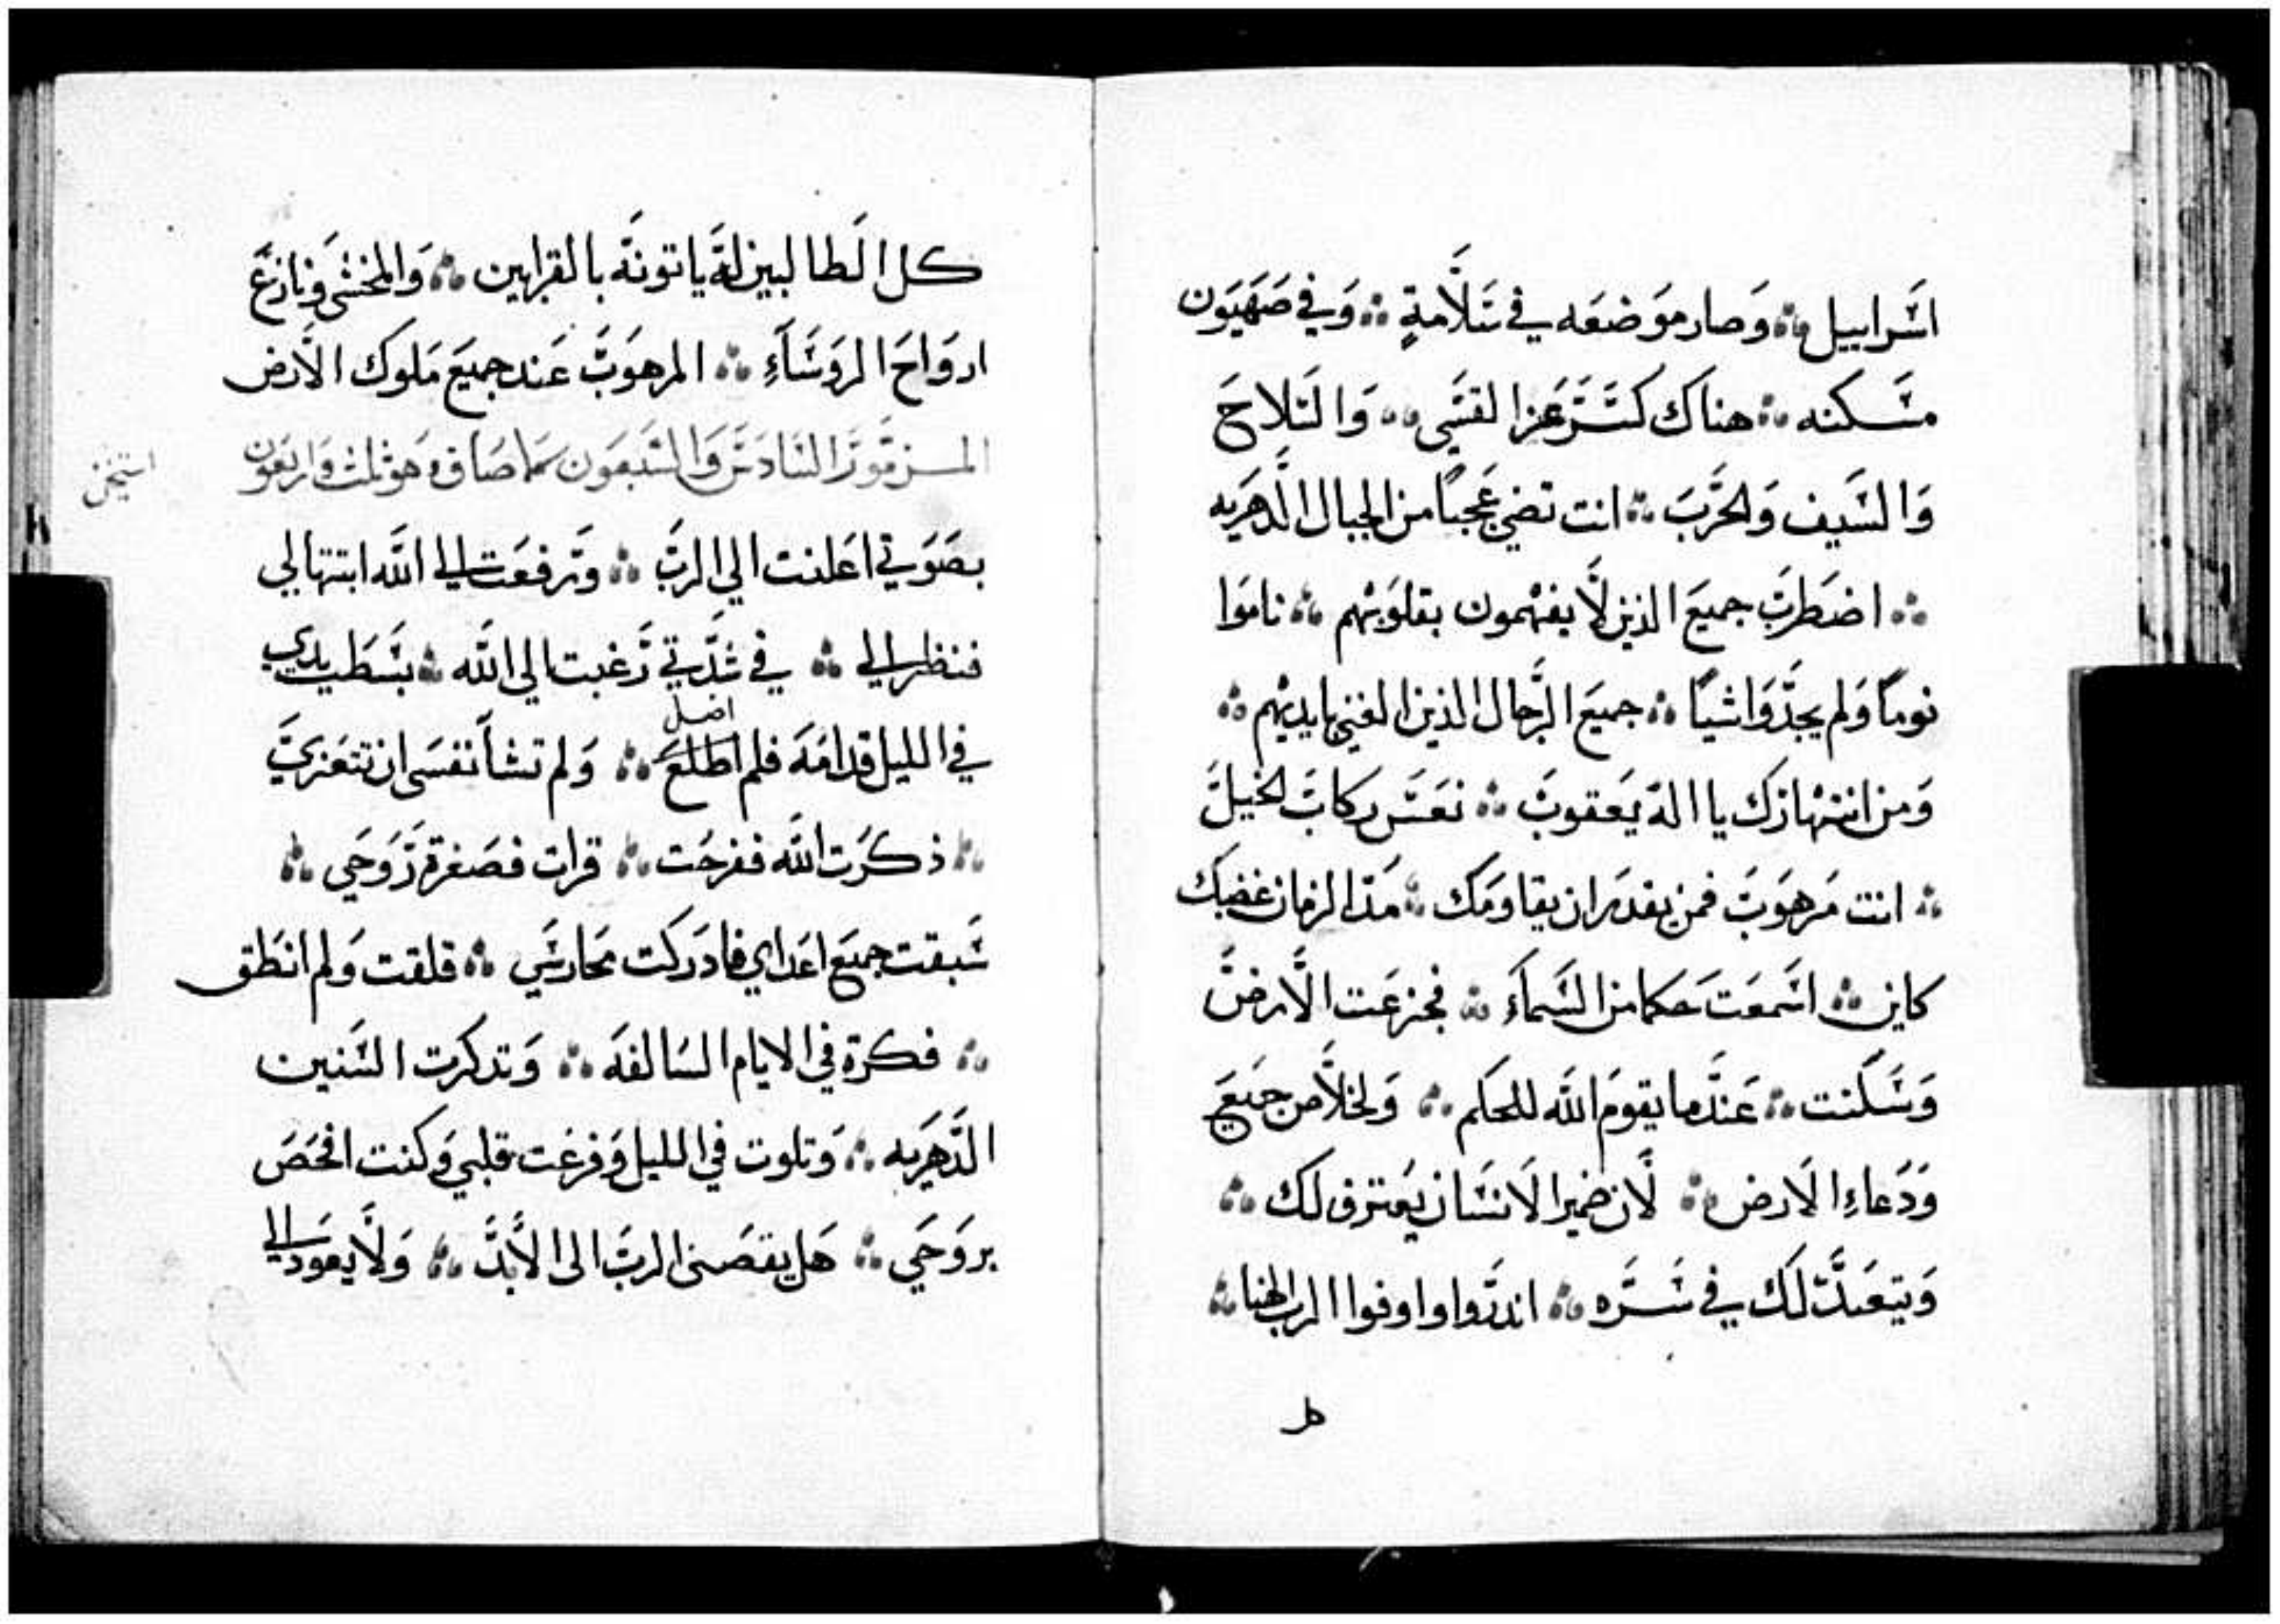 اسَرابيل ⁘ وَصار موَضعَه في سَلَّامةٍ ⁘ وَفي صَهَيَون
مسَكنه ⁘ هناَك كسَّرَ عَز القسَي ⁘ وَالسَلاحَ
وَالسَيف وَالحَربَ ⁘ انت تضي عَجباً من الجبال الَدهَريه
⁘ اضطَربَ جميَع الذين لَّا يفهمون بقلوَبهم ⁘ ناموَا
نوماً وَلم يجدَّوَا شياً ⁘ جميَع الرَّجال الذين الغني بايديهم ⁘
وَمن انتهازَك يا الهَ يَعقوبَ ⁘ نعَسَ ركابَ الخيلَ
⁘ انت مَرهوَبَ فمن يقدَر ان يقاوَمَك ⁘ مَذ الزمان غضبَك
كاين ⁘ اسَمعَتَ حَكما من السَماَء ⁘ فجزعَت الَّارضَ
وَسَكَنت ⁘ عَندَّما يقوَم اللَه للحَكم ⁘ وَلخلَّاص جميَعَ
وَدَعاءِ الَارض ⁘ لَان ضمير الَانسَان يَعترف لك ⁘
وَيتعَبدَّ لَك في سَرَّه ⁘ اندرَوا واوفوا الرب الهنا ⁘
كل
كل الَطالبين لهَ ياتونهَ بالقرابين ⁘ وَالمخشَي وَنازعَ
اروَاحَ الروَسَاَءِ ⁘ المرهوَبَ عَند جميَع مَلوَك الَارض
المزمَوَر السَادسَ وَالسَبعَون لَاصَاف وَهوَ ثلث وَاربَعَون
بصَوَتي اعَلنت الي الربَ ⁘ وَرفعَت الي اللَه ابتهالي
فنظر الي ⁘ في شدَّتي رَغبت الي اللَه ⁘ بسَطَ يدي
اضل
في الليل قدامَهَ فلم اطلَعَ ⁘ وَلم تشاَ نفسَي ان تتعَزيَ
⁘ ذكَرَت اللَه ففرحَت ⁘ قرات فصَغرة رَوَحَي ⁘
سَبقت جميَع اعَداي فادرَكت مَحارسَي ⁘ قلقت وَلم انطَق
⁘ فكرة في الايام السَالفهَ ⁘ وَتدكرت السَنين
الدَهَريه ⁘ وَتلوت في الليل وَفرغَت قلبي وَكنت افحَصَ
بروَحَي ⁘ هَل يقصَني الربَ الى الَابدَّ ⁘ وَلَّا يعودَ الي